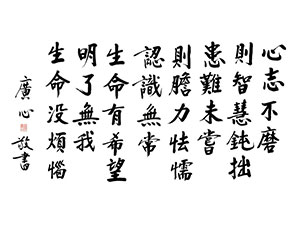 心志不磨
則智慧鈍拙
患難未嘗
則膽力怯懦
認識無常
生命有希望
明了無我
生命没煩惱
廣心敬書